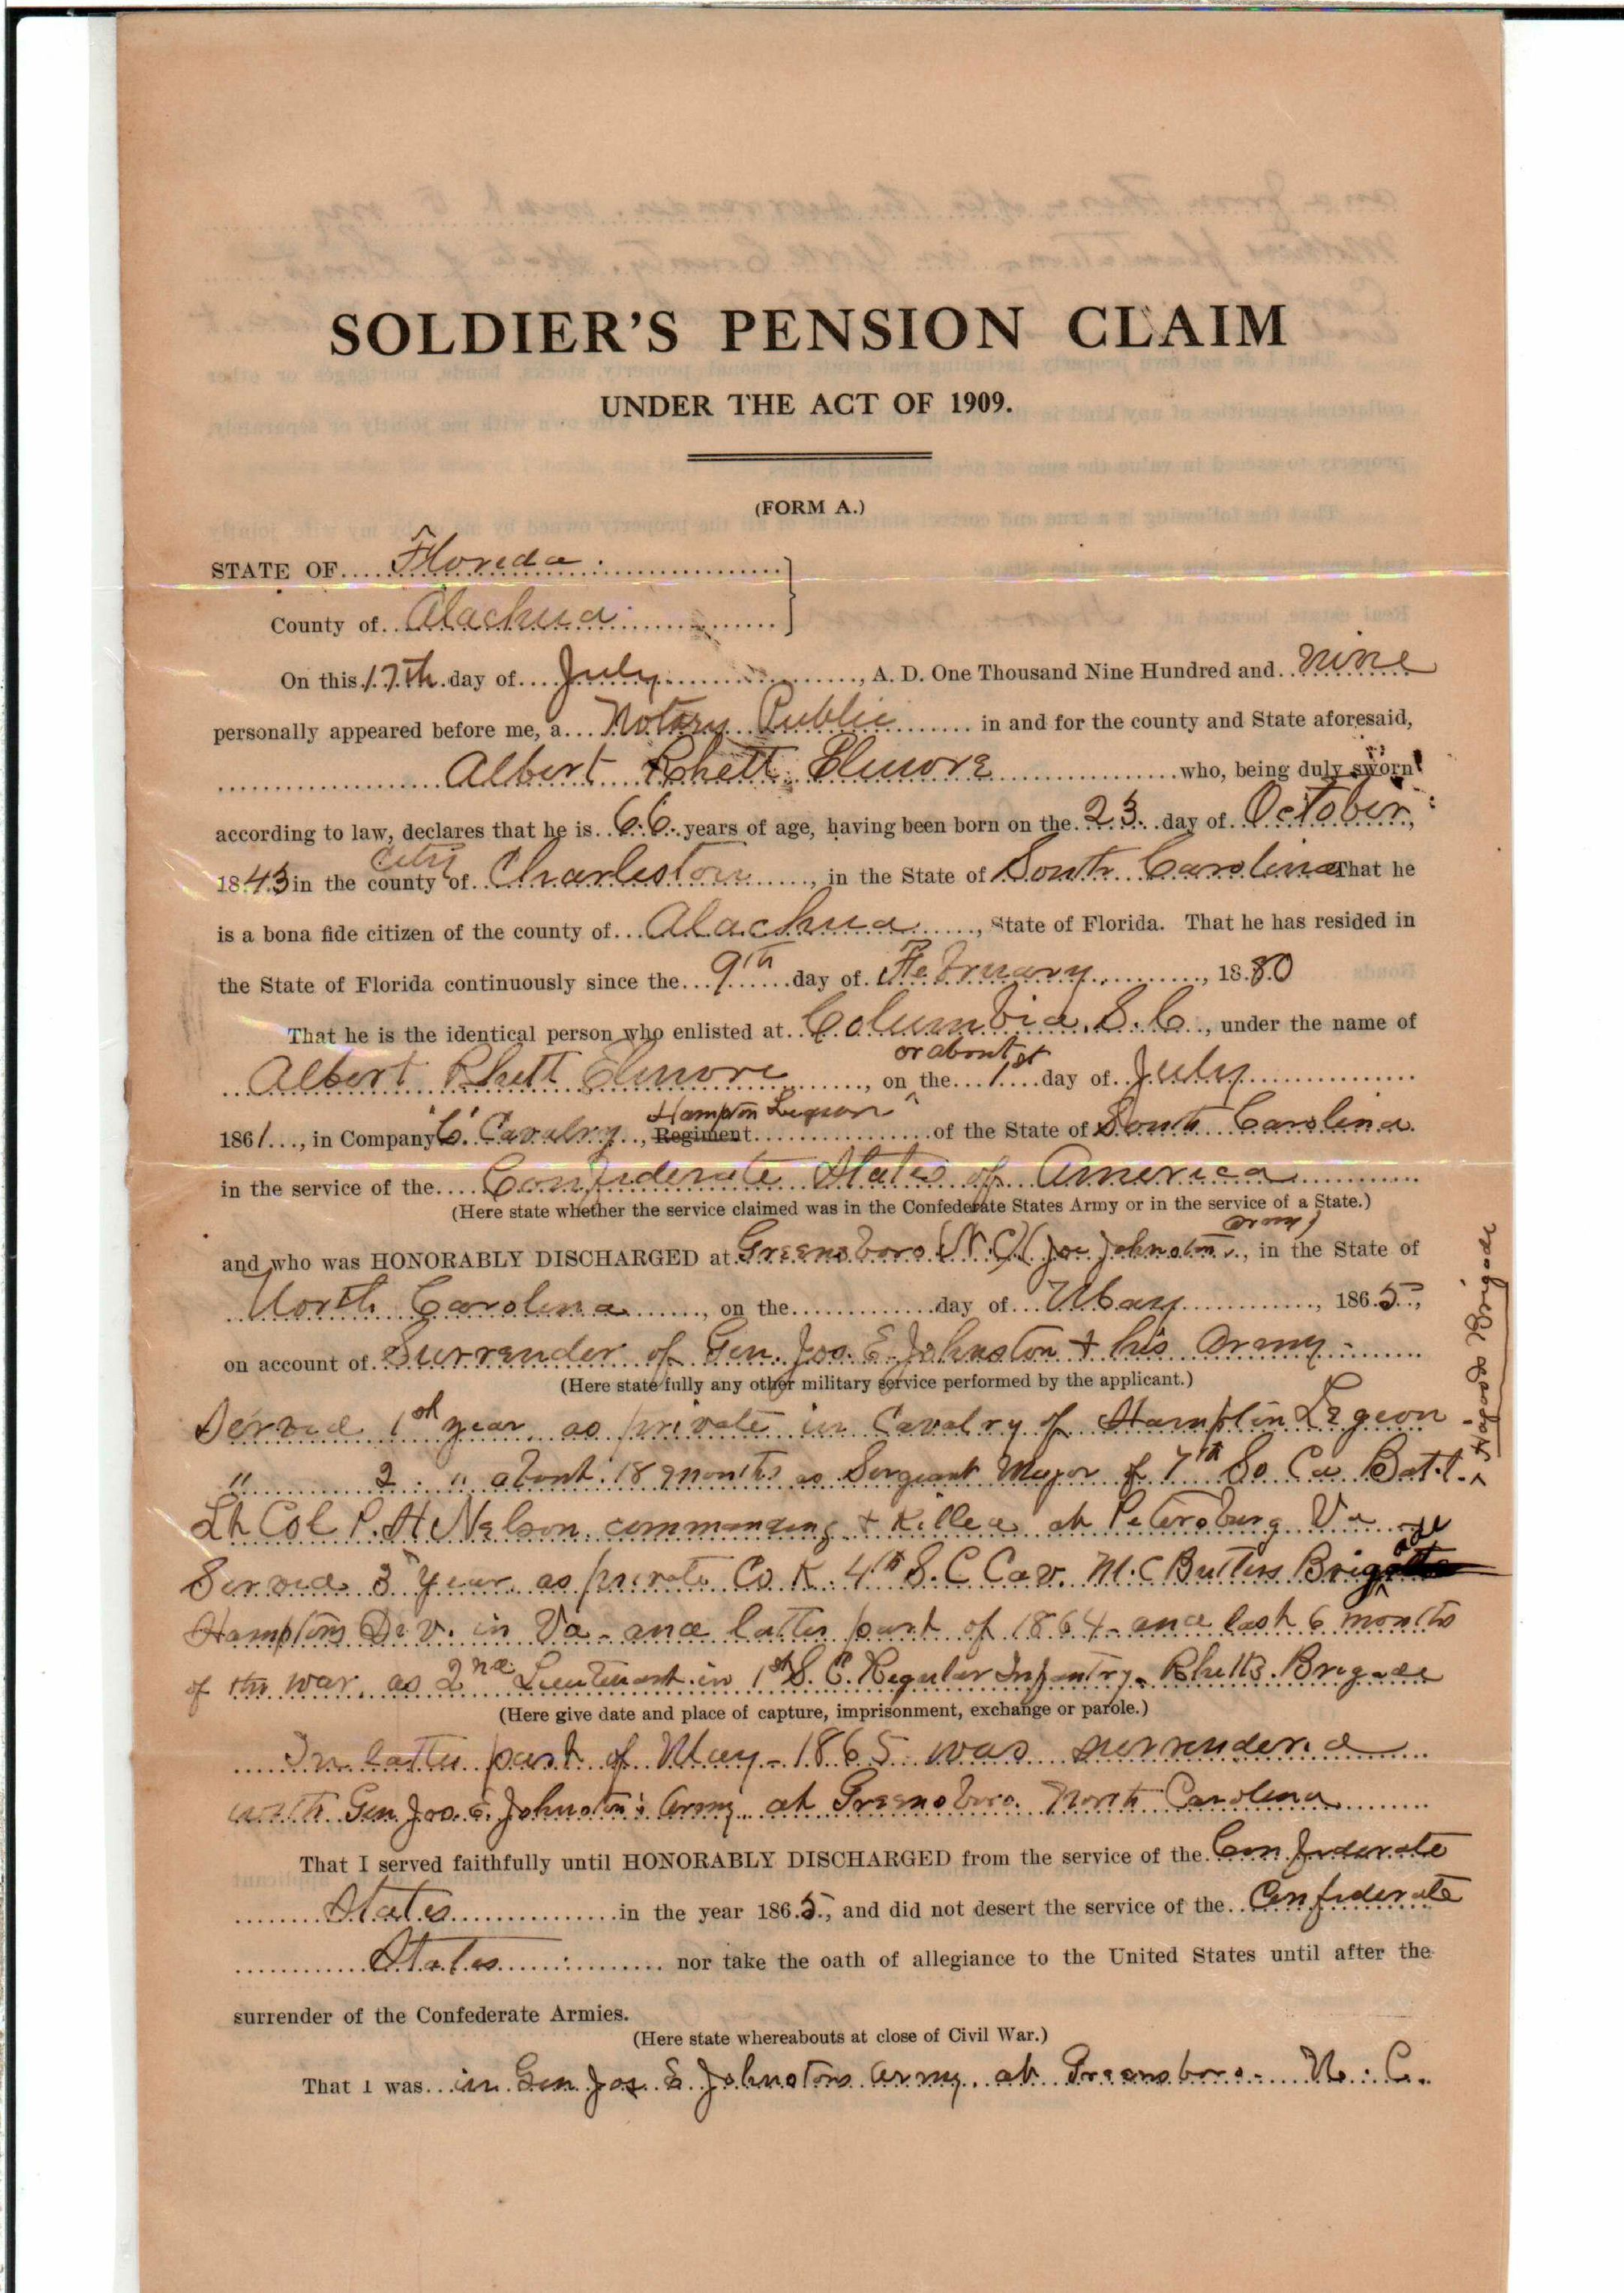 SOLDIER'S PENSION CLAIM
UNDER THE ACT OF 1909.
(FORM A.)
STATE OF Florida
County of Alachua
On this 17th day of July, A. D. One Thousand Nine Hundred and nine
personally appeared before me, a Notary Public in and for the county and State aforesaid,
Albert Rhett Elmore who, being duly sworn
according to law, declares that he is 66 years of age, having been born on the 23 day of October,
1843 in the county City of Charleston, in the State of South Carolina That he
is a bona fide citizen of the county of Alachua, State of Florida. That he has resided in
the State of Florida continuously since the 9th day of February, 1880
That he is the identical person who enlisted at Columbia, S. C., under the name of
Albert Rhett Elmore, on the or about 1st day of July
1861, in Company "C" Cavalry, Regiment Hampton Legion of the State of South Carolina
in the service of the Confederate States of America
(Here state whether the service claimed was in the Confederate States Army or in the service of a State.)
and who was HONORABLY DISCHARGED at Greensboro (N. C) (Joe Johnston army), in the State of
North Carolina, on the day of May, 1865,
on account of Surrender of Gen. Jos. E. Johnston + his army -
(Here state fully any other military service performed by the applicant.)
Served 1st year, as private in Cavalry of Hampton Legeon
" 2 " about 18 months as Sergeant Major of 7th So Ca Batt. Hagoods Brigade
Lt Col P. H Nelson commanding + killed at Petersburg Va
Served 3d year as private Co K. 4th S. C Cav. M. C Butlers Brigade
Hamptons Div. in Va - and latter part of 1864 - and last 6 months
of the war, as 2nd Lieutenant in 1st S. C. Regular Infantry - Rhetts Brigade
(Here give date and place of capture, imprisonment, exchange or parole.)
In latter part of May - 1865 was surrendered
with Gen Jos. E. Johnston's army at Greensboro North Carolina
That I served faithfully until HONORABLY DISCHARGED from the service of the Confederate
States in the year 1865, and did not desert the service of the Confederate
States nor take the oath of allegiance to the United States until after the
surrender of the Confederate Armies.
(Here state whereabouts at close of Civil War.)
That I was in Gen Jos E Johnstons army at Greensboro - N. C.